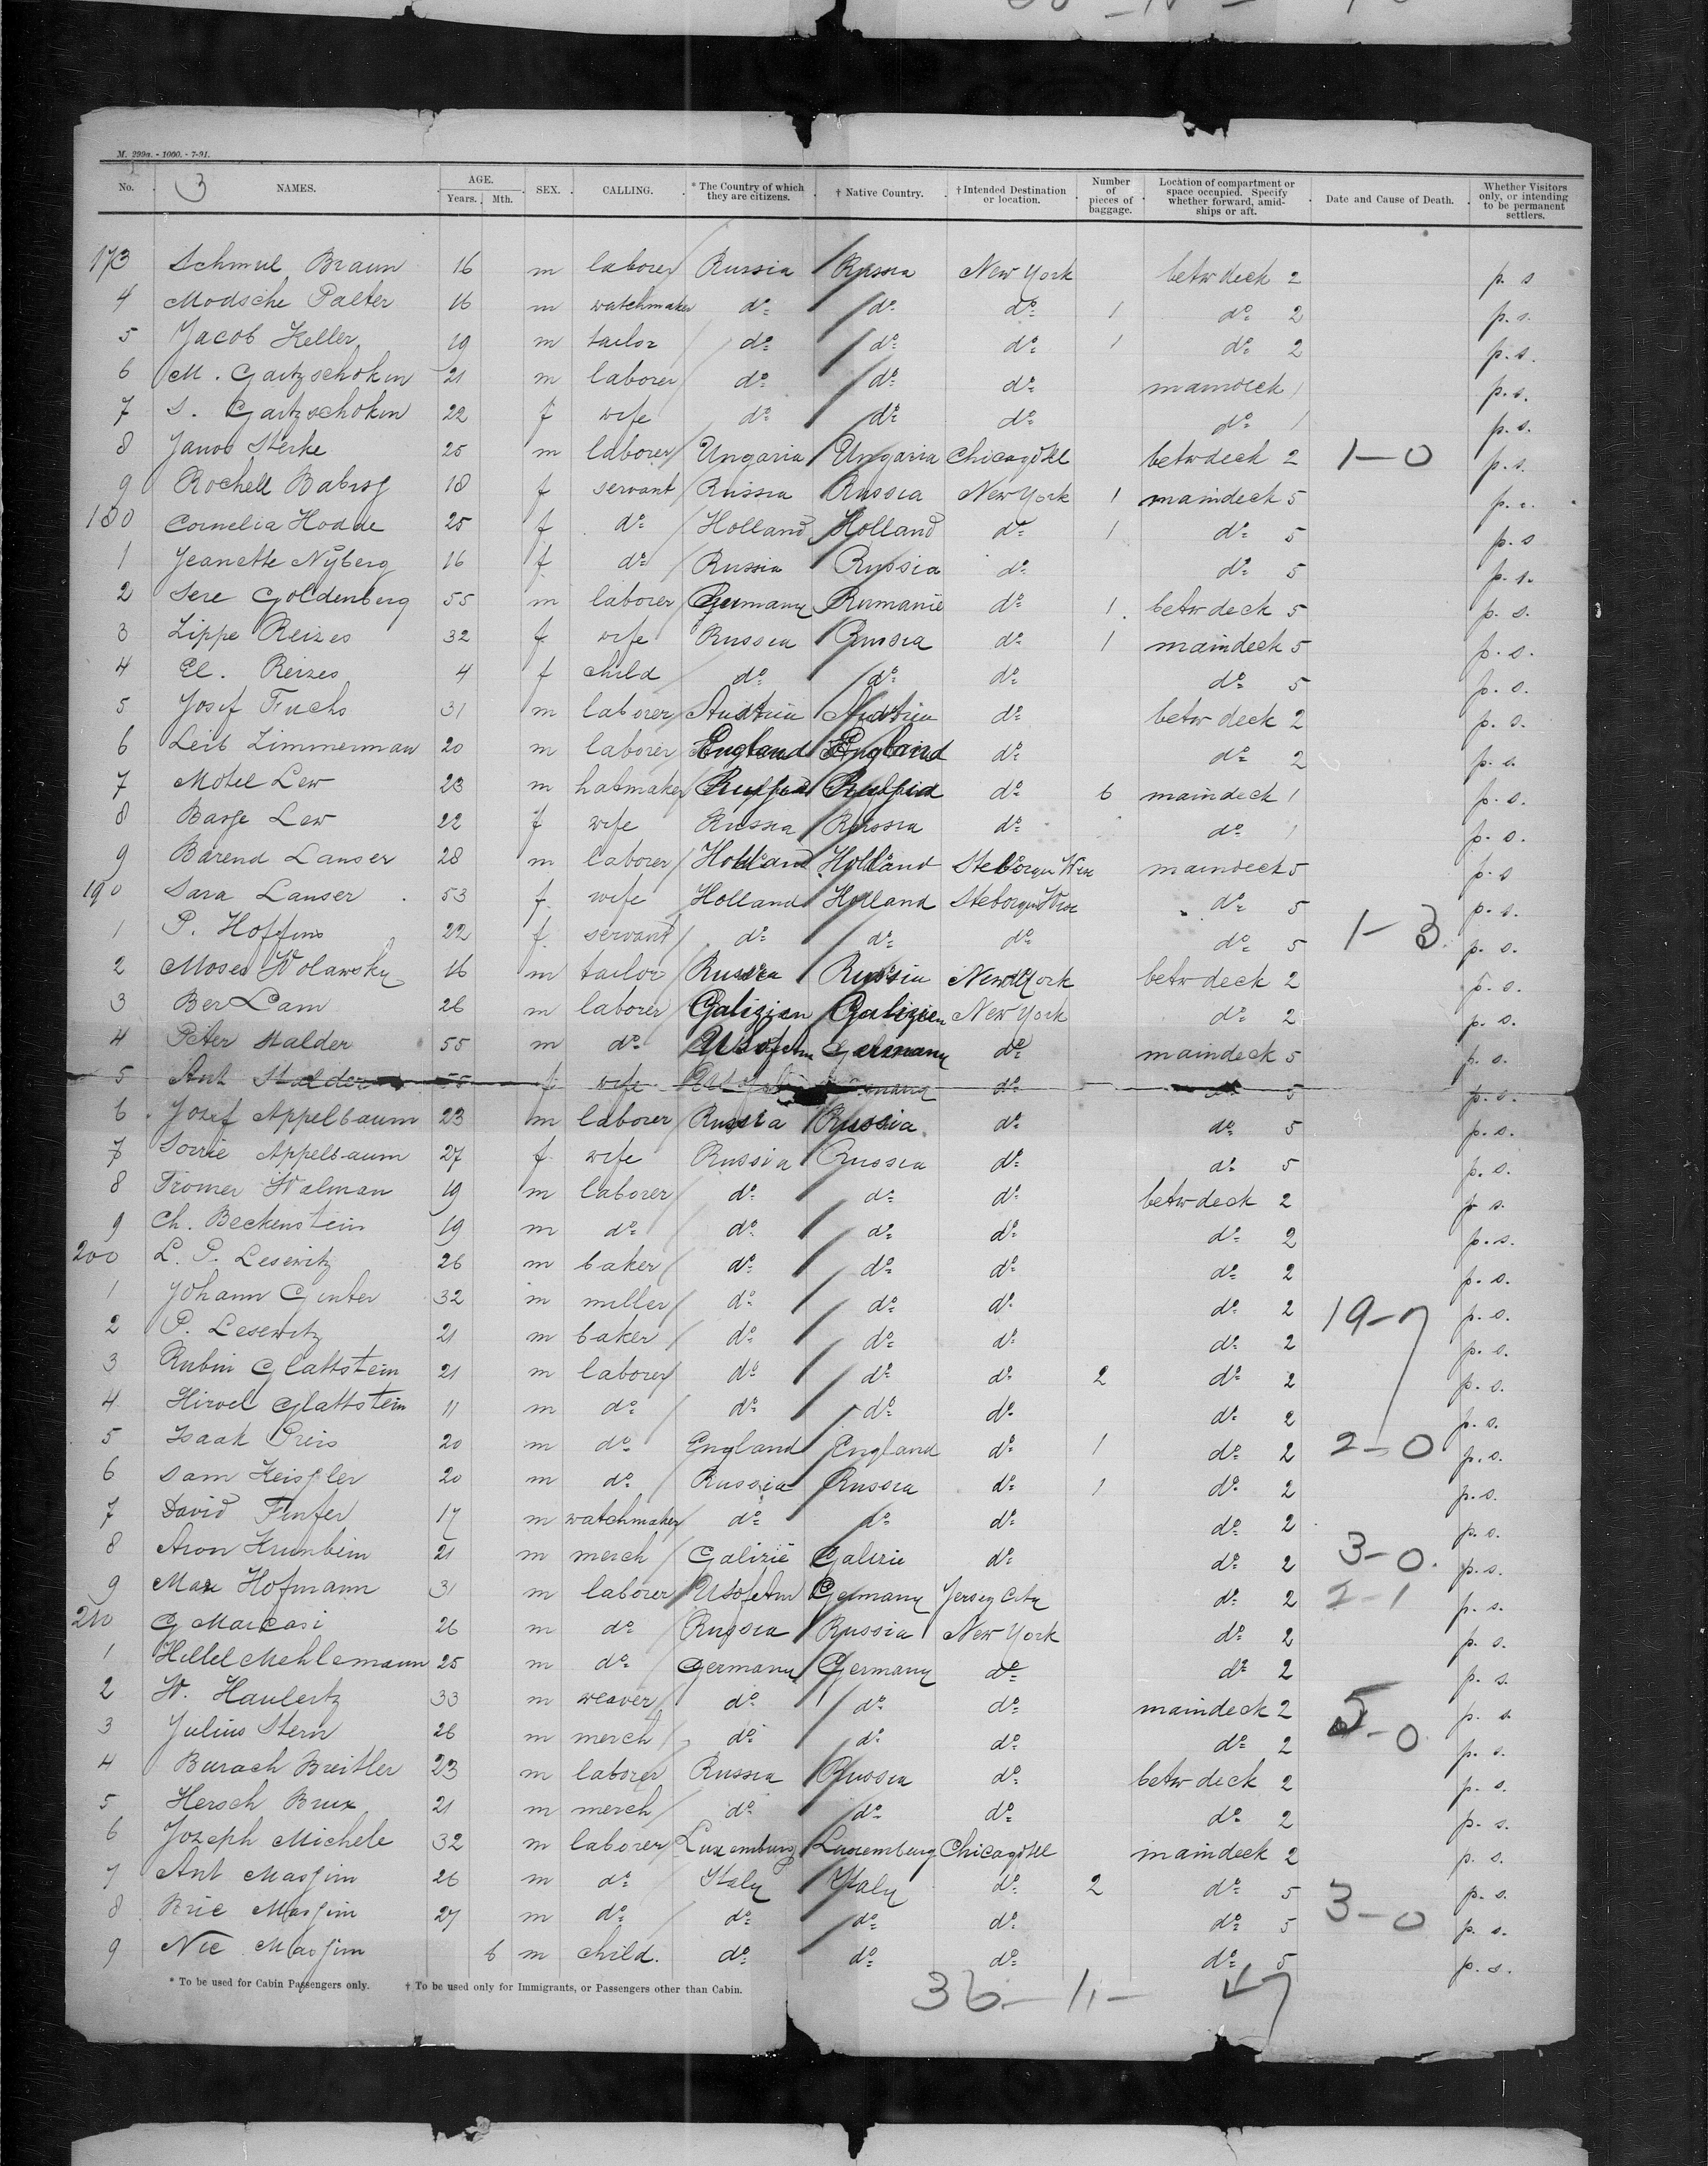 M. 299a. - 1000. - 7-91.
No. 3 NAMES. AGE. Years. Mth. SEX. CALLING. * The Country of which they are citizens. † Native Country. † Intended Destination or location. Number of pieces of baggage. Location of compartment or space occupied. Specify whether forward, amidships or aft. Date and Cause of Death. Whether Visitors only, or intending to be permanent settlers.
173 Schmul Braun 16 m laborer Russia Russia New York betw deck 2 p. s
4 Modsche Palter 16 m watchmaker do do do 1 do 2 p. s.
5 Jacob Keller 19 m tailor do do do 1 do 2 p. s.
6 M. Gartzschokin 21 m laborer do do do maindeck 1 p. s.
7 S. Gartzschokin 22 f wife do do do do 1 p. s.
8 Janos Sterke 25 m laborer Ungaria Ungaria Chicago Ill betw deck 2 1-0 p. s.
9 Rochell 18 f servant Russia Russia New York 1 maindeck 5 p. s.
180 Cornelia Hodde 25 f do Holland Holland do 1 do 5 p. s
1 Jeanette Nyberg 16 f do Russia Russia do do 5 p. s.
2 Sere Goldenberg 55 m laborer Germany Rumanie do 1 betw deck 5 p. s.
3 Lippe Reizes 32 f wife Russia Russia do 1 maindeck 5 p. s.
4 El. Reizes 4 f child do do do do 5 p. s.
5 Josef Fuchs 31 m laborer Austria Austria do betw deck 2 p. s.
6 Leib Zimmerman 20 m laborer England England do do 2 p. s.
7 Motel Lew 23 m hatmaker Russia Russia do 6 maindeck 1 p. s.
8 Basse Lew 22 f wife Russia Russia do do 1 p. s.
9 Barend Lanser 28 m laborer Holland Holland maindeck 5 p. s
190 Sara Lanser 53 f wife Holland Holland do 5 p. s.
1 P. Hoffins 22 f servant do do do do 5 1-3 p. s.
2 Moses Wolawsky 16 m tailor Russia Russia New York betw deck 2 p. s.
3 Ber Lam 26 m laborer Galizien Galizien New York do 2 p. s.
4 Peter Stalder 55 m do USofAm Germany do maindeck 5 p. s.
5 Ant Stalder 55 f wife do 5 p. s.
6 Josef Appelbaum 23 m laborer Russia Russia do do 5 p. s.
7 Sorrie Appelbaum 27 f wife Russia Russia do do 5 p. s.
8 Fromer Walman 19 m laborer do do do betw deck 2 p. s.
9 Ch. Beckenstein 19 m do do do do do 2 p. s.
200 L. P. Lesewitz 26 m baker do do do do 2 p. s.
1 Johann Ginter 32 m miller do do do do 2 19-7 p. s.
2 P. Lesewitz 21 m baker do do do do 2 p. s.
3 Rubin Glattstein 21 m laborer do do do 2 do 2 p. s.
4 Hirvel Glattstein 11 m do do do do do 2 p. s.
5 Isaak Preis 20 m do England England do 1 do 2 2-0 p. s.
6 Sam Keissler 20 m do Russia Russia do 1 do 2 p. s.
7 David Finfer 17 m watchmaker do do do do 2 p. s.
8 Aron Krumbein 21 m merch Galizie Galizie do do 2 3-0. p. s.
9 Max Hofmann 31 m laborer USofAm Germany Jersey City do 2 2-1 p. s.
210 G Marcasi 26 m do Russia Russia New York do 2 p. s.
1 Hillel Mehlemann 25 m do Germany Germany do do 2 p. s.
2 W. Haulertz 33 m weaver do do do maindeck 2 p. s
3 Julius Stern 26 m merch do do do do 2 5-0 p. s.
4 Burach Breitler 23 m laborer Russia Russia do betw deck 2 p. s.
5 Hersch Brux 21 m merch do do do do 2 p. s.
6 Jozeph Michele 32 m laborer Luxemburg Luxemburg Chicago Ill maindeck 2 p. s.
7 Ant Massim 26 m do Italy Italy do 2 do 5 p. s.
8 Bric Massim 27 m do do do do do 5 3-0 p. s.
9 Nic Massim 6 m child. do do do do 5 p. s.
* To be used for Cabin Passengers only. † To be used only for Immigrants, or Passengers other than Cabin.
36- 11- 47